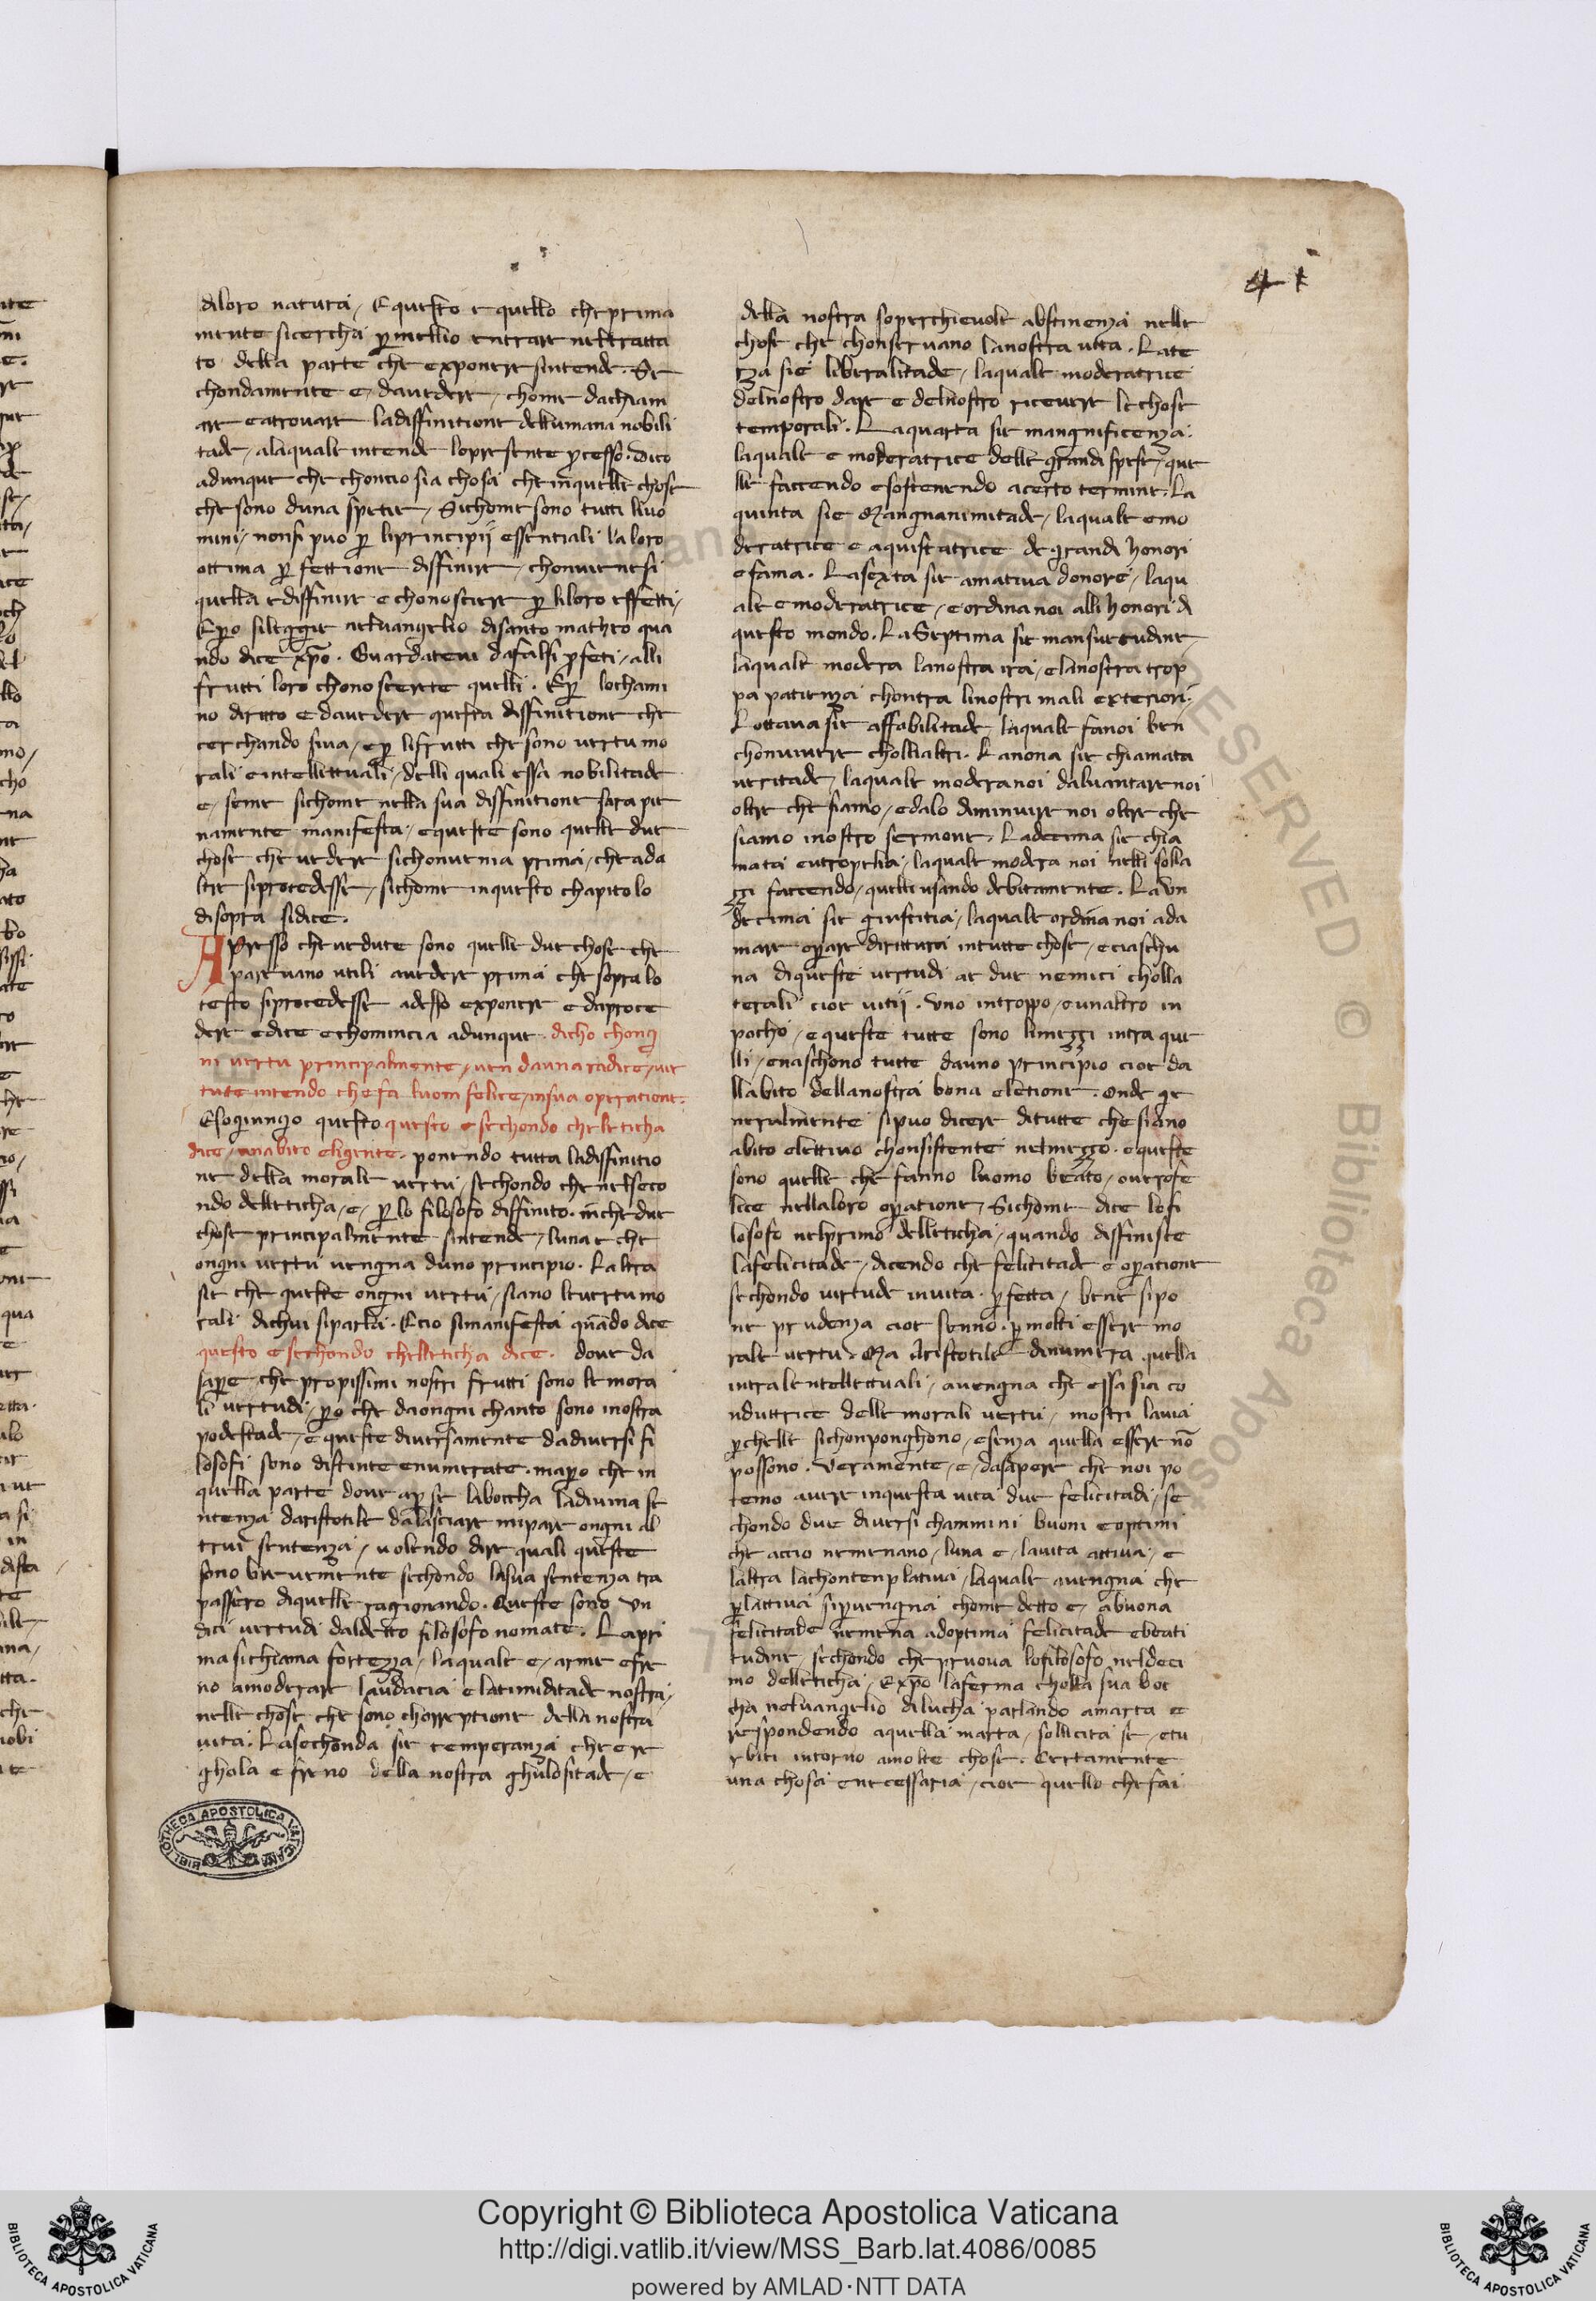 41
diloro natura / E questo e quello che prima
mente sicercha p mellio entrare neltratta
to della parte che exponere sintende. Se
chondamente e / davedere / chome dachiam
are e atrovare ladiffinitione dellumana nobili
tade / alaquale intende lopresente pcesso. dico
adunque che choncio sia chosa che inquelle chose
che sono duna spetie / Sichome sono tutti lluo
mini / nonsi puo p liprincipij essentiali la loro
ottima pfettione diffinire / chonvienesi
quella ediffinire e chonosciere p liloro effetti /
Epo sileggie neluangelio disanto matheo qua
ndo dice xpo. Guardatevi dafalsi pfeti / alli
frutti loro chonoscerete quelli. Ep lochami
no diritto e davedere questa diffinitione che
cerchando siva / ep lifrutti che sono vertu mo
rali e intellittuali / delli quali essa nobilitade
e / seme sichome nella sua diffinitione sara pie
namente manifesta / e queste sono quelle due
chose che vedere sichonvenia prima / che ada
ltre siprocedesse / sichome inquesto chapitolo
disopra sidice.
Apresso che vedute sono quelle due chose che
parevano utili avedere prima che sopra lo
testo siprocedesse adesso exponere e daproce
dere e dice e chomincia adunque. dicho chongi
ni vertu principalmente / ven dauna radice / vir
tute intendo che fa luom felice / insua operatione.
Esogiungio questo questo e sechondo chelleticha
dice / unabito eligente. ponendo tutta ladiffinitio
ne della morale vertu / sechondo che nelseco
ndo delleticha / e / p lo filosofo diffinito. inche due
chose principalmente sintende / luna e che
ongni vertu vengna duno principio. Laltra
sie che queste ongni vertu / siano levertu mo
rali dichui siparla. Ecio simanifesta quando dice
questo e sechondo chelleticha dice. dove da
sape / che propissimi nostri frutti sono le mora
li vertudi / po che daongni chanto sono inostra
podestade / e queste diversamente dadiversi fi
losofi sono distinte enumerate. mapo che in
quella parte dove apse labocha ladivina se
ntenza daristotile dalasciare mipare ongni al
trui sentenza / volendo dire quali queste
sono brevemente sechondo lasua sentenza tra
passero diquelle ragionando. Queste sono un
dici vertudi daldetto filosofo nomate. Lapri
ma sichiama fortezza / laquale e / arme e fre
no amoderare laudacia e latimiditade nostra /
nelle chose che sono choreptione della nostra
vita. Lasechonda sie temperanza che e re
ghola e freno della nostra ghulositade / e
della nostra soperchievole abstinenza nelle
chose che chonservano lanostra vita. Late
rza sie liberalitade / laquale moderatrice
delnostro dare e delnostro ricevere le chose
temporali. Laquarta sie mangnificenza.
laquale e moderatrice delle grandi spese / que
lle faccendo e sostenendo acerto termine. La
quinta sie Mangnanimitade / laquale e mo
deratrice e aquistatrice de grandi honori
e fama. Lasexta sie amativa donore / laqu
ale e moderatrice / e ordina noi alli honori di
questo mondo. La Septima sie mansuetudine /
laquale modera lanostra ira / e lanostra trop
pa patienza chontra linostri mali exteriori.
Lottava sie affabilitade laquale fa noi ben
chonvivere cholli altri. La nona sie chiamata
veritade / laquale modera noi daluantare noi
oltre che siamo / e dalo diminuire noi oltre che
siamo inostro sermone. Ladecima sie chia
mata eutropelia / laquale modera noi nelli solla
zzi faccendo / quelli usando debitamente. La un
decima sie giustitia / laquale ordina noi ada
mare opare dirittura intutte chose / e ciaschu
na diqueste vertudi ae due nemici cholla
terali cioe vitij. uno introppo / e unaltro in
pocho / e queste tutte sono limezzi intra que
lli / enaschono tutte dauno principio cioe da
llabito dellanostra bona eletione. onde ge
neralmente sipuo dicere ditutte che siano
abito elettivo chonsistente nelmezzo. e queste
sono quelle che fanno luomo beato / overo fe
lice nellaloro opatione / Sichome dice lofi
losofo nelprimo delleticha / quando diffiniste
lafelicitade / dicendo che felicitade e opatione
sechondo virtude invita. pfetta / bene sipo
ne prudenza cioe senno. p molti essere mo
rale vertu. Ma Aristotile dinumera quella
intralentellettuali / avengna che essa sia co
nduttrice delle morali vertu / mostri lavia
pchelle sichonponghono / e senza quella essere no
possono. Veramente / e / dasapere che noi po
temo avere inquesta vita due felicitadi / se
chondo due diversi chammini buoni e optimi
che accio nemenano / luna e / lavita attiva / e
laltra lachontenplativa / laquale avengna che
plattiva sipvengna chome detto e / abuona
felicitade nemena adoptima felicitade e beati
tudine / sechondo che pruova lofilosofo neldeci
mo delleticha / Expo laferma cholla sua boc
cha neluangelio dilucha parlando amarta e
respondendo aquella marta / sollicita se / e tu
rbiti intorno amolte chose. Certamente
una chosa e necessaria / cioe quello che fai
BIBLIOTHECA APOSTOLICA VATICANA
RESERVED © Biblioteca Apost
Copyright © Biblioteca Apostolica Vaticana
http://digi.vatlib.it/view/MSS_Barb.lat.4086/0085
powered by AMLAD·NTT DATA
BIBLIOTECA APOSTOLICA VATICANA
BIBLIOTECA APOSTOLICA VATICANA